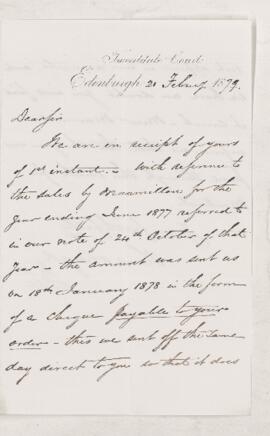 Institute Court
Edinburgh 21 Feby 1879.
Dear Sir
We are in receipt of yours
of 1st instant. — with reference to
the sales by Macmillan for the
year ending June 1877 referred to
in our note of 24th October of that
year — the amount was sent us
on 18th January 1878 in the form
of a cheque payable to your
order — this we sent off the same
day direct to you so that it does